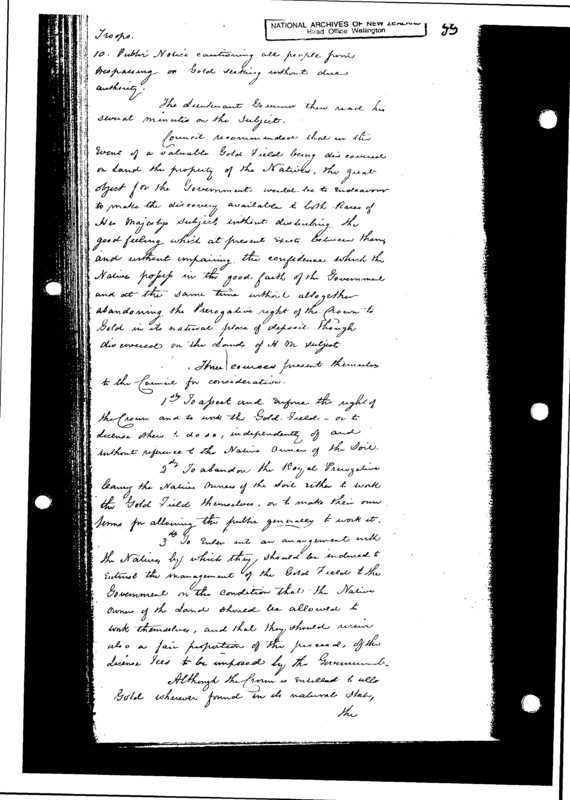 NATIONAL ARCHIVES OF NEW ZEALAND
Head Office Wellington
55
Troops.
10. Public Notice cautioning all people from
trespassing or Gold seeking without due
authority.
The Lieutenant Governor then read his
several minutes on the subject.
Council recommended that in the
Event of a valuable Gold Field being discovered
on Land the property of the Natives, the great
object for the Government would be to Endeavour
to make the discovery available to both Races of
Her Majestys Subjects without disturbing the
good feeling which at present Exists between them,
and without impairing the confidence which the
Natives possess in the good faith of the Government
and at the same time without altogether
abandoning the Prerogative right of the Crown to
Gold in its natural place of deposit though
discovered on the Lands of H M Subject
Three courses present themselves
to the Council for consideration.
1st To assert and Enforce the right of
the Crown and to work the Gold Field – or to
license others to do so, independently of and
without reference to the Native Owners of the Soil.
2nd To abandon the Royal Prerogative
leaving the Native Owners of the soil either to work
the Gold Field themselves, or to make their own
terms for allowing the public generally to work it.
3rd To Enter into an arrangement with
the Natives by which they should be induced to
Entrust the management of the Gold Field to the
Government on the condition that the Native
Owners of the Land should be allowed to
work themselves, and that they should receive
also a fair proportion of the proceeds of the
License Fees to be imposed by the Government.
Although the Crown is Entitled to all
Gold wherever found in its natural state,
the